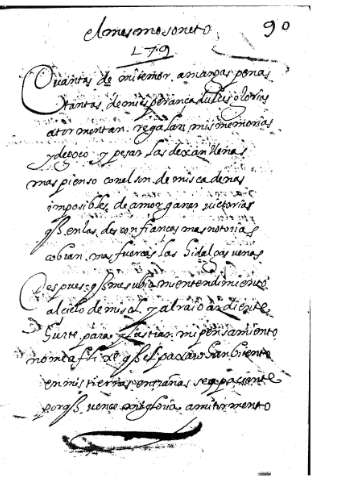 el mesmo soneto 90
179
Quantas de mi temor amargas penas
tantas de mi esperança dulces glorias
atormentan regalan mis memorias
y de goço y pesar las dexan llenas
mas pienso con el son de mis cadenas
imposibles de amor ganar victorias
q̃ en las desconfianças mas notorias
cobran mas fuerças las hidalgas venas
Despues q̃ me subio mi entendimiento
al cielo de mi sol y al raio ardiente
para mi pensamiento
no me q̃ el paxaro hanbriento
en mis tiernas entrañas se apaçiente
porq̃ vence mi gloria a mi tormento